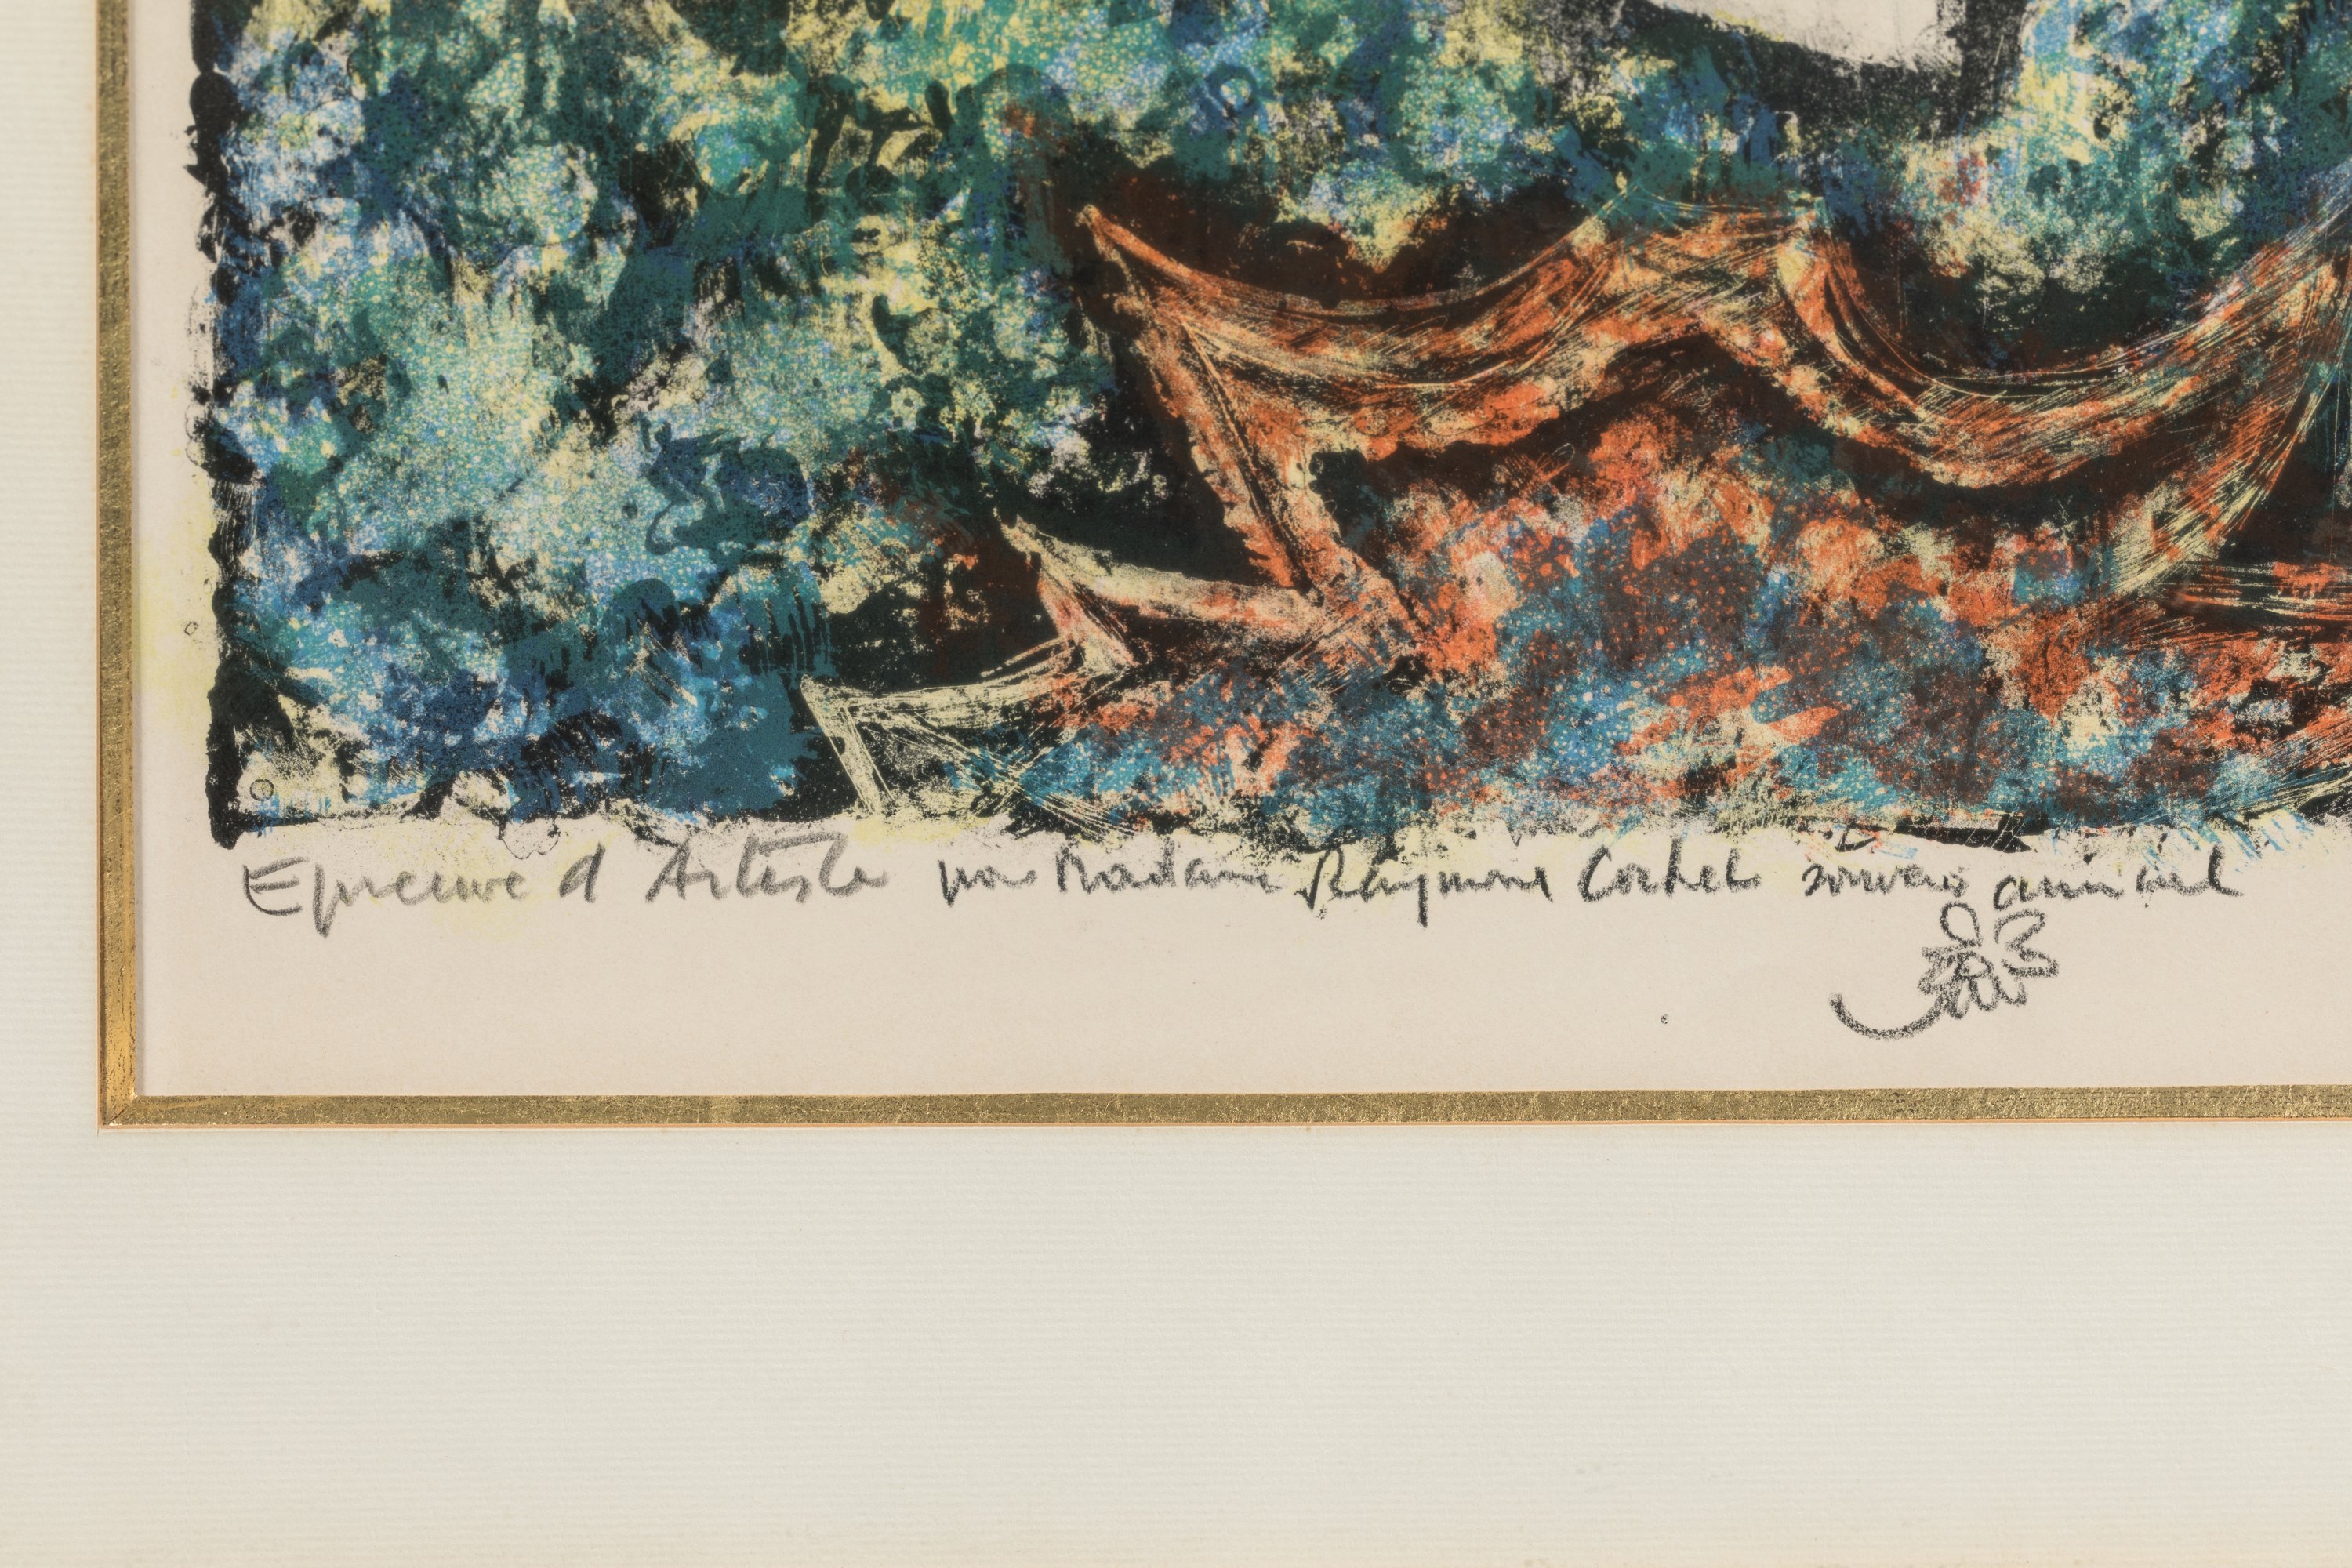 Epreuve d'Artiste pour Madame Raymond Cortel souvenir amical